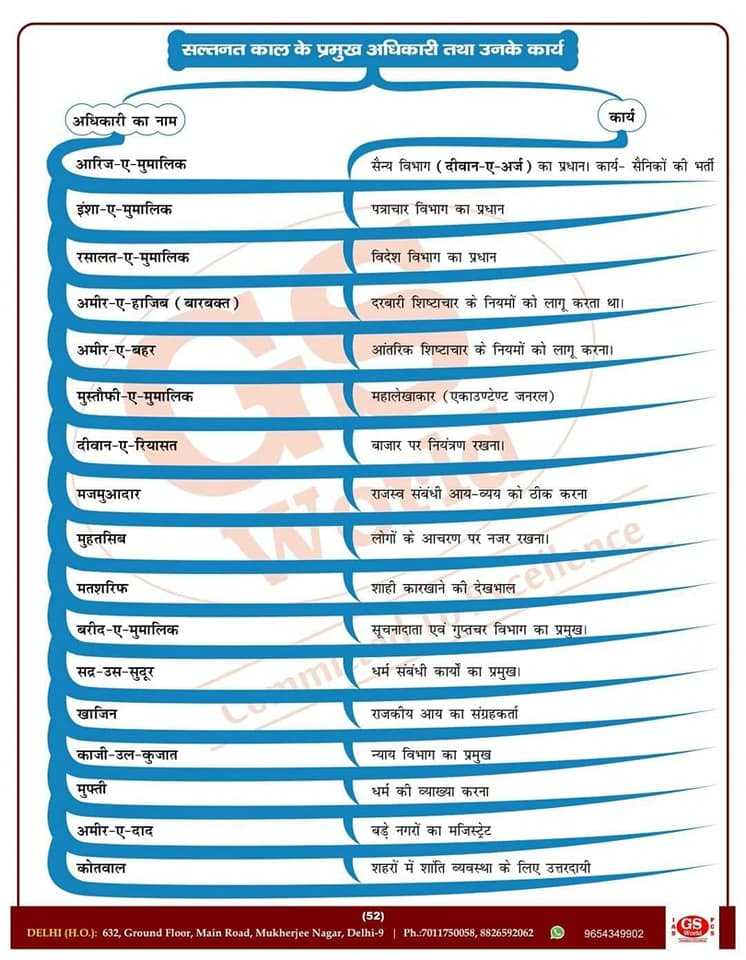 सल्तनत काल के प्रमुख अधिकारी तथा उनके कार्य
अधिकारी का नाम कार्य
आरिज-ए-मुमालिक सैन्य विभाग (दीवान-ए-अर्ज) का प्रधान। कार्य- सैनिकों की भर्ती
इंशा-ए-मुमालिक पत्राचार विभाग का प्रधान
रसालत-ए-मुमालिक विदेश विभाग का प्रधान
अमीर-ए-हाजिब (बारबक्त) दरबारी शिष्टाचार के नियमों को लागू करता था।
अमीर-ए-बहर आंतरिक शिष्टाचार के नियमों को लागू करना।
मुस्तौफी-ए-मुमालिक महालेखाकार (एकाउण्टेण्ट जनरल)
दीवान-ए-रियासत बाजार पर नियंत्रण रखना।
मजमुआदार राजस्व संबंधी आय-व्यय को ठीक करना
मुहतसिब लोगों के आचरण पर नजर रखना।
मतशरिफ शाही कारखाने की देखभाल
बरीद-ए-मुमालिक सूचनादाता एवं गुप्तचर विभाग का प्रमुख।
सद्र-उस-सुदूर धर्म संबंधी कार्यों का प्रमुख।
खाजिन राजकीय आय का संग्रहकर्ता
काजी-उल-कुजात न्याय विभाग का प्रमुख
मुफ्ती धर्म की व्याख्या करना
अमीर-ए-दाद बड़े नगरों का मजिस्ट्रेट
कोतवाल शहरों में शांति व्यवस्था के लिए उत्तरदायी
GS
World
Committed To Excellence
(52)
DELHI (H.O.): 632, Ground Floor, Main Road, Mukherjee Nagar, Delhi-9 | Ph.:7011750058, 8826592062 9654349902
IAS GS World PCS